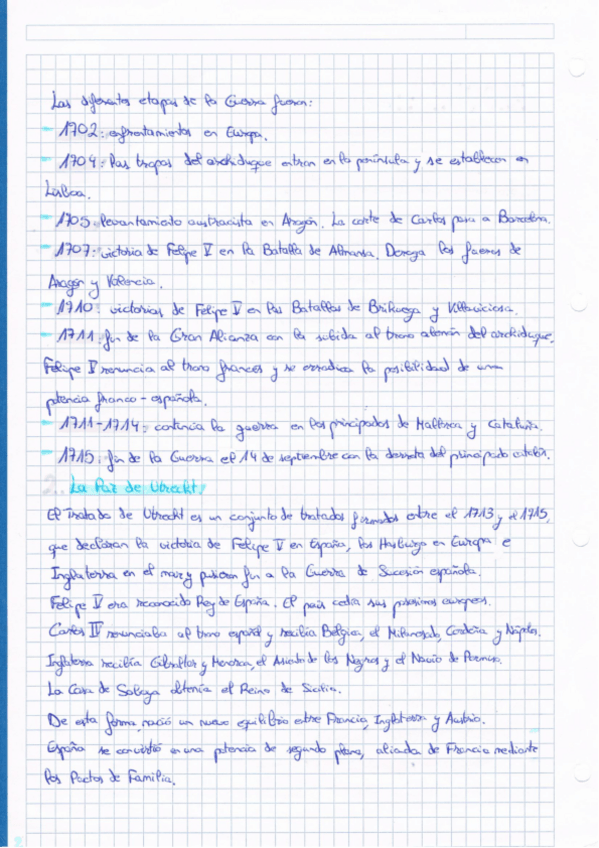 Las diferentes etapas de la Guerra fueron:
- 1702: enfrentamientos en Europa.
- 1704: las tropas del archiduque entran en la península y se establecen en
Lisboa.
- 1705: levantamiento austracista en Aragón. La corte de Carlos pasa a Barcelona.
- 1707: victoria de Felipe V en la Batalla de Almansa. Deroga los fueros de
Aragón y Valencia.
- 1710: victorias de Felipe V en las Batallas de Brihuega y Villaviciosa.
- 1711: fin de la Gran Alianza con la subida al trono alemán del archiduque.
Felipe V renuncia al trono francés y se erradica la posibilidad de una
potencia franco-española.
- 1711-1714: continúa la guerra en los principados de Mallorca y Cataluña.
- 1715: fin de la Guerra el 14 de septiembre con la derrota del principado catalán.
2. La Paz de Utrecht.
El Tratado de Utrecht es un conjunto de tratados firmados entre el 1713 y el 1715,
que declaran la victoria de Felipe V en España, los Habsburgo en Europa e
Inglaterra en el mar y pusieron fin a la Guerra de Sucesión española.
Felipe V era reconocido Rey de España. El país cedía sus posesiones europeas.
Carlos IV renunciaba al trono español y recibía Bélgica, el Milanesado, Cerdeña y Nápoles.
Inglaterra recibía Gibraltar y Menorca, el Asiento de los Negros y el Navío de Permiso.
La Casa de Saboya obtenía el Reino de Sicilia.
De esta forma, nació un nuevo equilibrio entre Francia, Inglaterra y Austria.
España se convirtió en una potencia de segundo plano, aliada de Francia mediante
los Pactos de Familia.